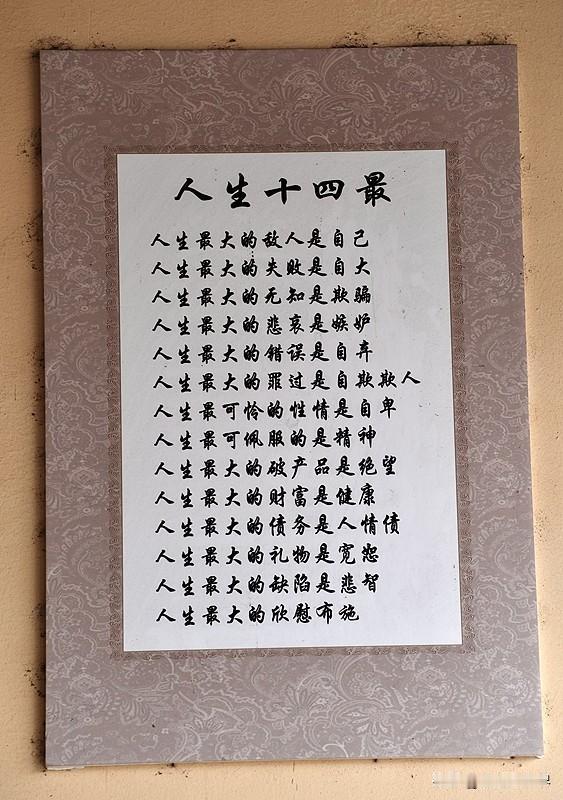 人生十四最
人生最大的敌人是自己
人生最大的失败是自大
人生最大的无知是欺骗
人生最大的悲哀是嫉妒
人生最大的错误是自弃
人生最大的罪过是自欺欺人
人生最可怜的性情是自卑
人生最可佩服的是精神
人生最大的破产品是绝望
人生最大的财富是健康
人生最大的债务是人情债
人生最大的礼物是宽恕
人生最大的缺陷是悲智
人生最大的欣慰布施